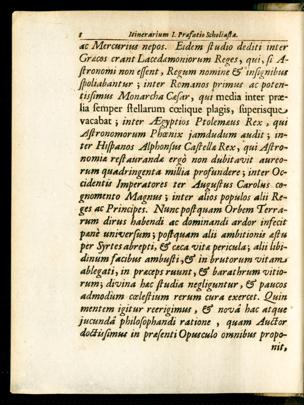 8 Itinerarium I. Præfatio Scholiastæ.
ac Mercurius nepos. Eidem studio dediti inter
Græcos erant Lacedæmoniorum Reges, qui, si A-
stronomi non essent, Regum nomine & insignibus
spoliabantur; inter Romanos primus ac poten-
tissimus Monarcha Cæsar, qui media inter præ-
lia semper stellarum cœlique plagis, superisque
vacabat; inter Ægyptios Ptolemæus Rex, qui
Astronomorum Phœnix jamdudum audit; in-
ter Hispanos Alphonsus Castellæ Rex, qui Astro-
nomiæ restaurandæ ergò non dubitavit aureo-
rum quadringenta millia profundere; inter Oc-
cidentis Imperatores ter Augustus Carolus co-
gnomento Magnus; inter alios populos alii Re-
ges ac Principes. Nunc postquam Orbem Terra-
rum dirus habendi ac dominandi ardor infecit
pænè universum; postquam alii ambitionis æstu
per Syrtes abrepti, & cæca vita pericula; alii libi-
dinum facibus ambusti, & in brutorum vitam
ablegati, in præceps ruunt, & barathrum vitio-
rum; divina hæc studia negliguntur, & paucos
admodum cœlestium rerum cura exercet. Quin
mentem igitur reerigimus, & novâ hac atque
jucundâ philosophandi ratione, quam Auctor
doctissimus in præsenti Opusculo omnibus propo-
nit,